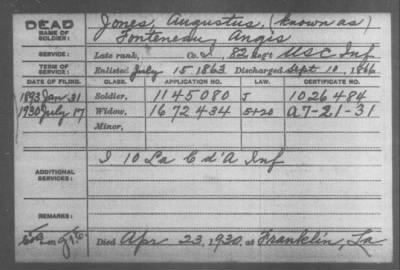 DEAD
NAME OF SOLDIER:
Jones, Augustus, (known as)
Fonteneau, Angis
SERVICE:
Late rank, Co. I, 82 Reg't USC Inf
TERM OF SERVICE:
Enlisted July 15 1863 Discharged Sept 10, 1866
DATE OF FILING. CLASS. APPLICATION NO. LAW. CERTIFICATE NO.
1893 Jan 31 Soldier, 1145080 J 1026484
1930 July 17 Widow, 1672434 5+20 A7-21-31
Minor,
ADDITIONAL SERVICES:
I 10 La C d'A Inf
REMARKS:
Died Apr 23, 1930, at Franklin, La